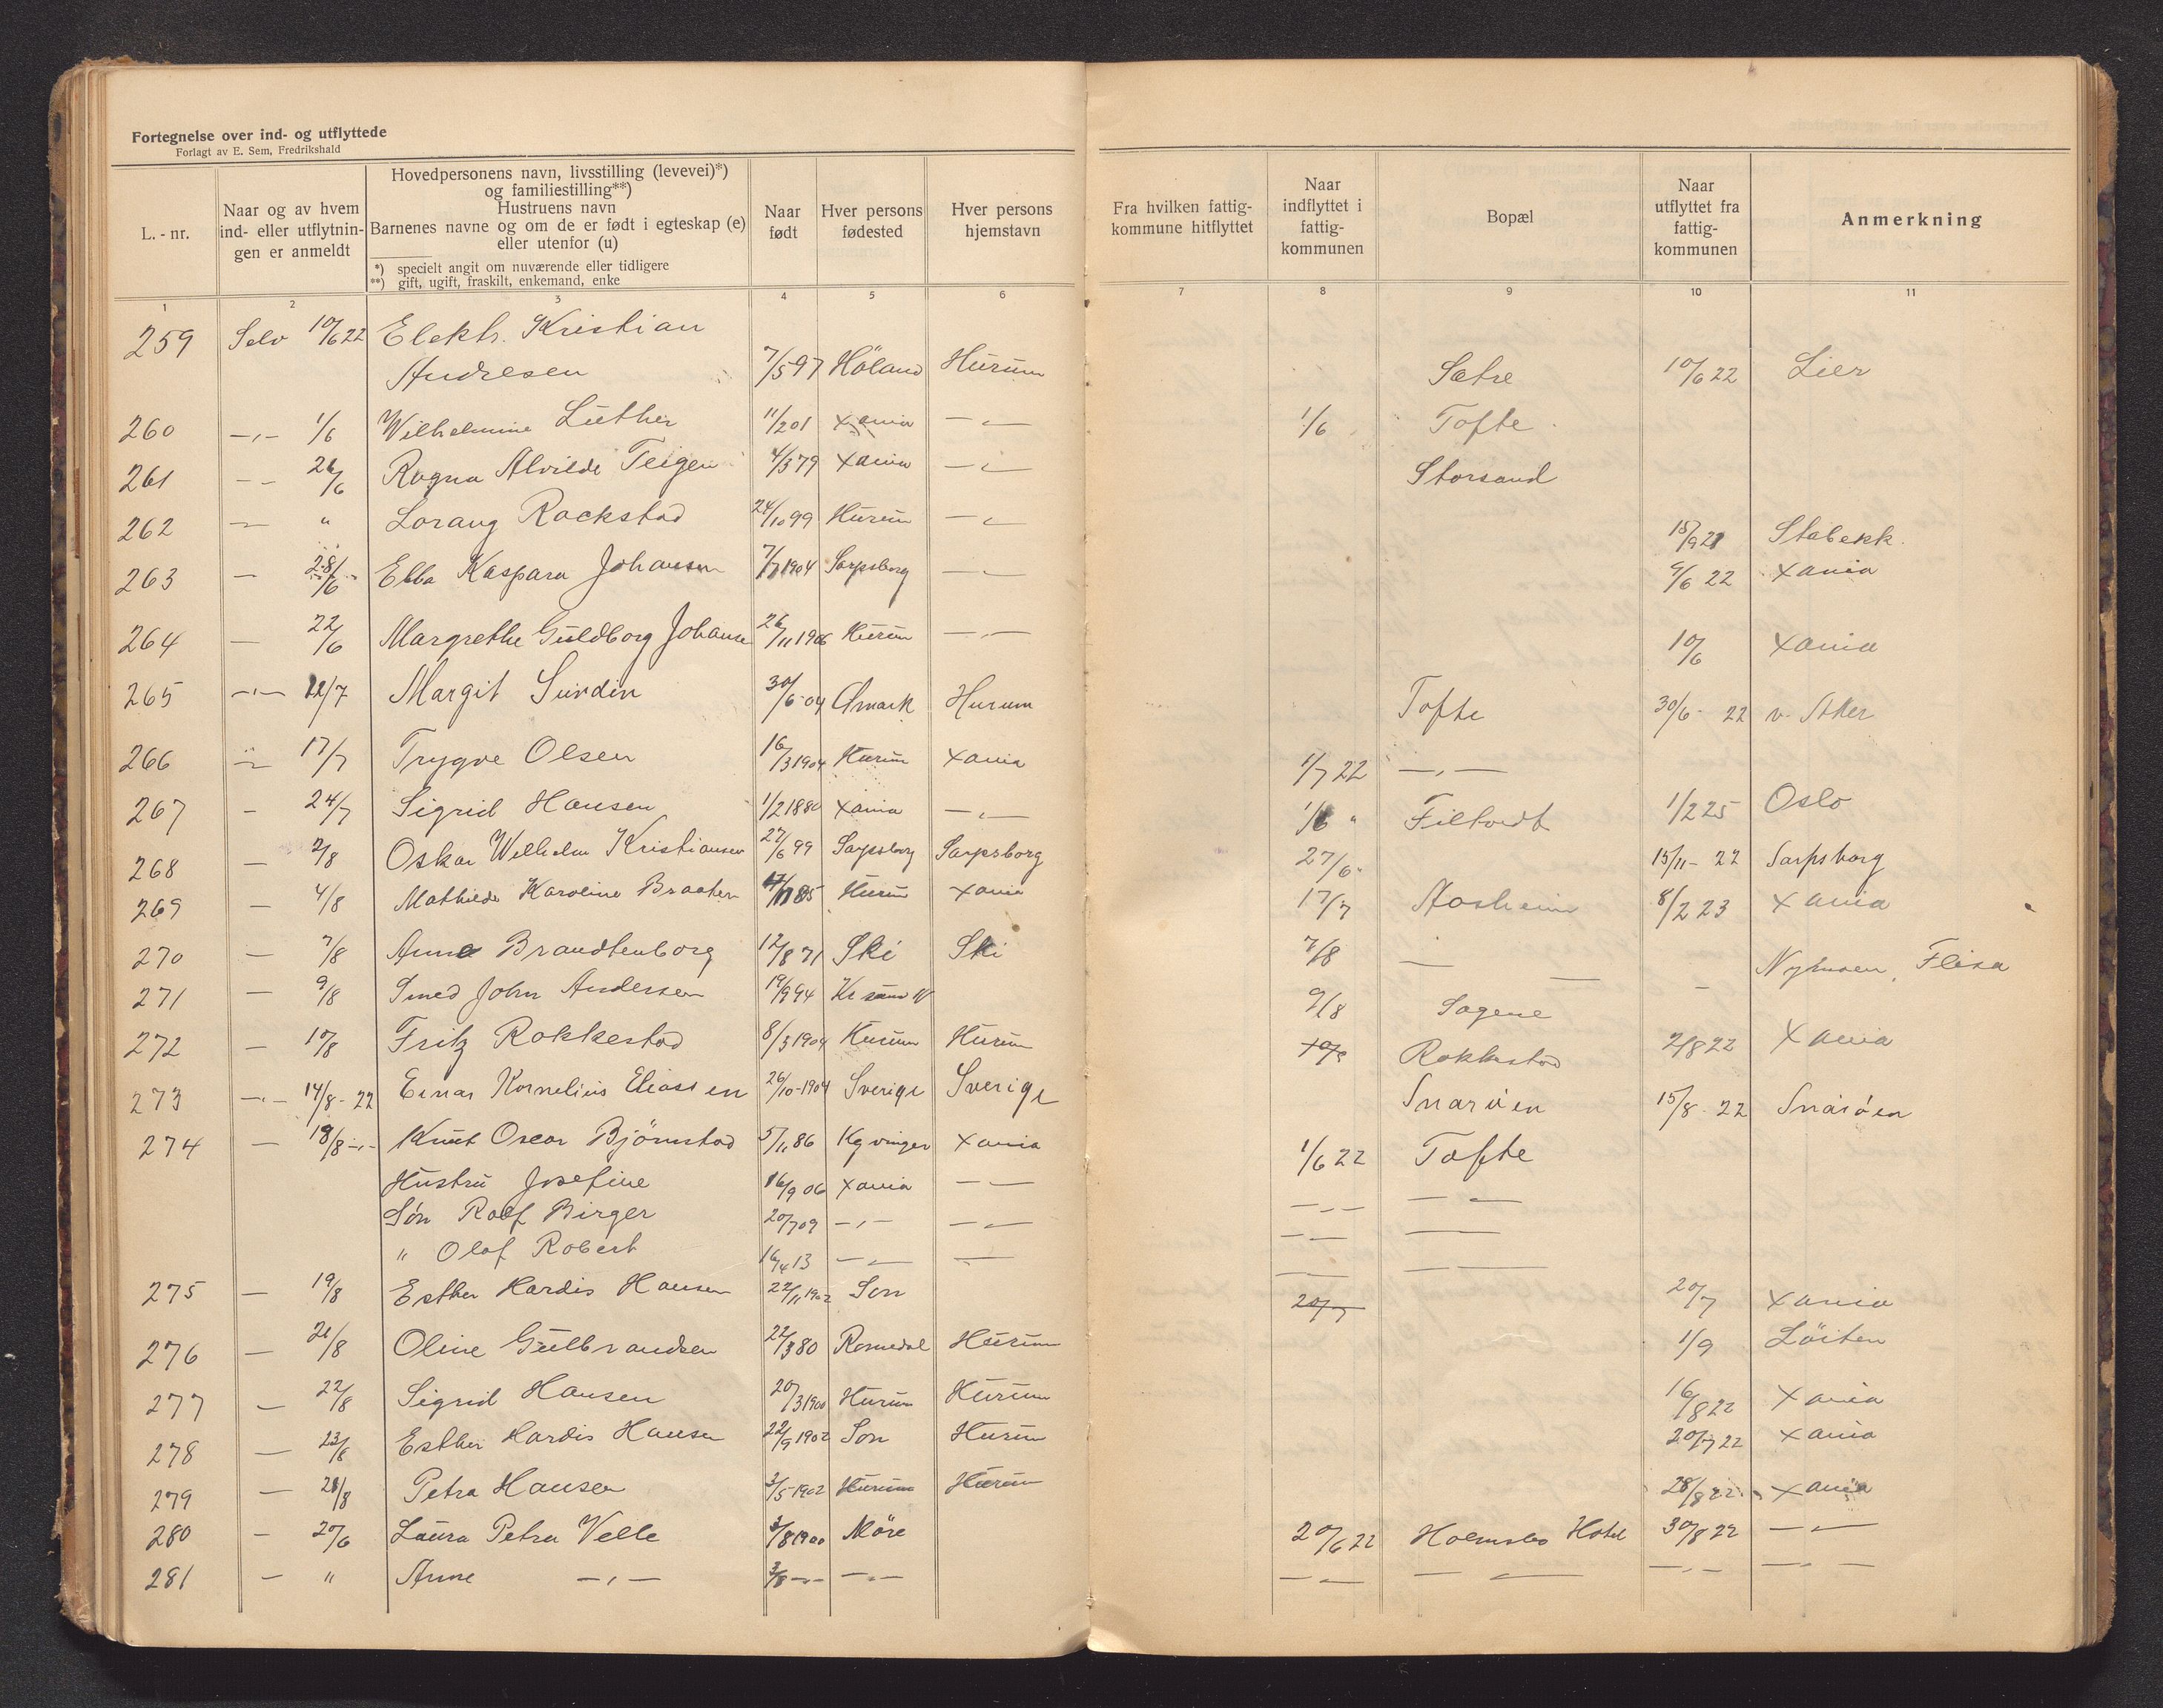 Fortegnelse over ind- og utflyttede
Forlagt av E. Sem, Fredrikshald
L.-nr.
Naar og av hvem
ind- eller utflytnin-
gen er anmeldt
Hovedpersonens navn, livsstilling (levevei)*)
og familiestilling**)
Hustruens navn
Barnenes navne og om de er født i egteskap (e)
eller utenfor (u)
*) specielt angit om nuværende eller tidligere
**) gift, ugift, fraskilt, enkemand, enke
Naar
født
Hver persons
fødested
Hver persons
hjemstavn
Fra hvilken fattig-
kommune hitflyttet
Naar
indflyttet i
fattig-
kommunen
Bopæl
Naar
utflyttet fra
fattig-
kommunen
Anmerkning
1 2 3 4 5 6 7 8 9 10 11
259 Selv 10/6 22 Elektr. Kristian
Andresen 7/5 97 Höland Hurum Sætre 10/6 22 Lier
260 -"- 1/6 Wilhelmine Luther 11/2 01 Xania -"- 1/6 Tofte
261 - - 26/6 Ragna Alvilde Teigen 4/3 79 Xania -"- Storsand
262 - " Lorang Rockstad 24/10 99 Hurum -"- 15/9 21 Stabekk
263 - 28/6 Ebba Kaspara Johansen 7/7 1904 Sarpsborg -"- 9/6 22 Xania
264 - 22/6 Margrethe Guldborg Johansen 26/11 1906 Hurum -"- 10/6 Xania
265 -"- 12/7 Margit Sundin 30/6 04 Ømark Hurum Tofte 30/6 - 22 v. Aker
266 - 17/7 Trygve Olsen 16/3 1904 Hurum Xania 1/7 22 -"-
267 - 24/7 Sigrid Hansen 1/2 1880 Xania -"- 1/6 " Filtvedt 1/2 25 Oslo
268 - 2/8 Oskar Wilhelm Kristiansen 27/6 99 Sarpsborg Sarpsborg 27/6 15/11 - 22 Sarpsborg
269 - 4/8 Mathilde Karoline Braaten 85 Hurum Xania 17/7 Aasheim 8/2 23 Xania
270 - 7/8 Anne Brandtenborg 12/8 71 Ski Ski 7/8 - - Nyhusen, Flisa
271 - 9/8 Smed John Andersen 19/9 94 Kr sund N 9/8 Sagene -
272 - 10/8 Fritz Rokkestad 8/3 1904 Hurum Hurum Rokkestad 2/8 22 Xania
273 -"- 14/8 - 22 Einar Kornelius Eliassen 26/10 - 1904 Sverige Sverige Snarøen 15/8 - 22 Snarøen
274 - 18/8 -"- Knut Oscar Björnstad 5/1 86 Kgvinger Xania 1/6 22 Tofte
Hustru Josefine 16/9 06 Xania - - -"- -"-
Søn Rolf Birger 20/7 09 -"- -"- - - -
" Olaf Robert 16/4 13 -"- - - -
275 - 19/8 Esther Hardis Hansen 22/11 1902 Son 20/7 20/7 Xania
276 - 21/8 Oline Gulbrandsen 22/3 80 Romedal Hurum 1/9 Löiten
277 - 22/8 Sigrid Hansen 20/3 1900 Hurum Hurum 16/8 22 Xania
278 - 23/8 Esther Hardis Hansen 22/9 1902 Son Hurum 20/7 22 Xania
279 - 28/8 Petra Hansen 3/5 1902 Hurum Hurum 28/8 22 Xania
280 - 20/6 Laura Petra Velle 3/8 1900 Möre 20/6 22 Holmsbo Hotel 30/8 22 -"-
281 - " Anne -"- 3/8 -"- -"- -"- - - -"- -"-